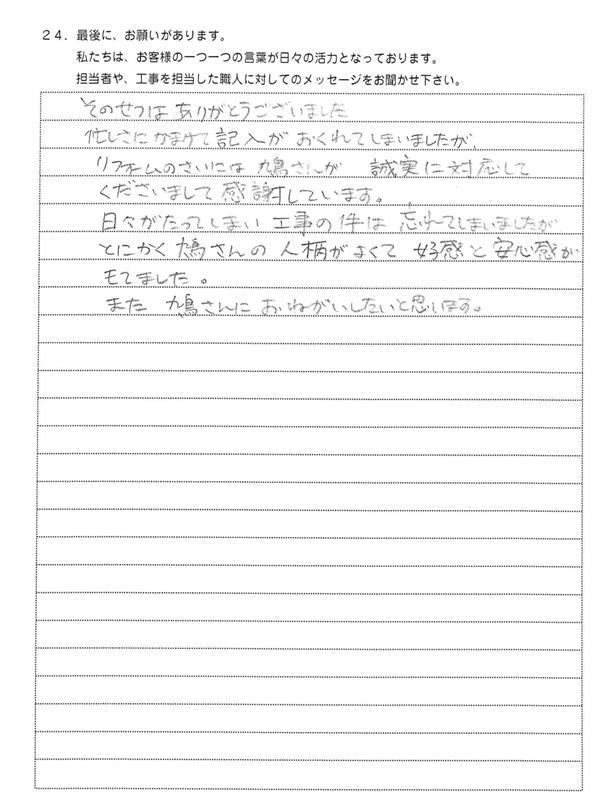 ２４．最後に、お願いがあります。
私たちは、お客様の一つ一つの言葉が日々の活力となっております。
担当者や、工事を担当した職人に対してのメッセージをお聞かせ下さい。
そのせつはありがとうございました
忙しさにかまけて記入がおくれてしまいましたが、
リフォームのさいには鳩さんが 誠実に対応して
くださいまして感謝しています。
日々がたってしまい工事の件は忘れてしまいましたが
とにかく鳩さんの人柄がよくて好感と安心感が
もてました。
また 鳩さんにおねがいしたいと思います。